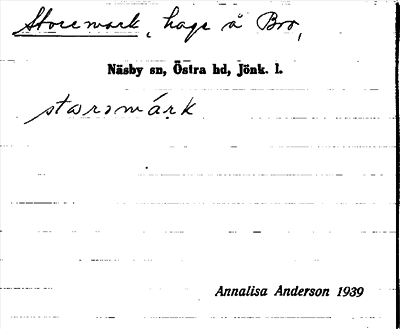 Storemark, hage å Bro,
Näsby sn, Östra hd, Jönk. l.
starǝmárk
Annalisa Anderson 1939